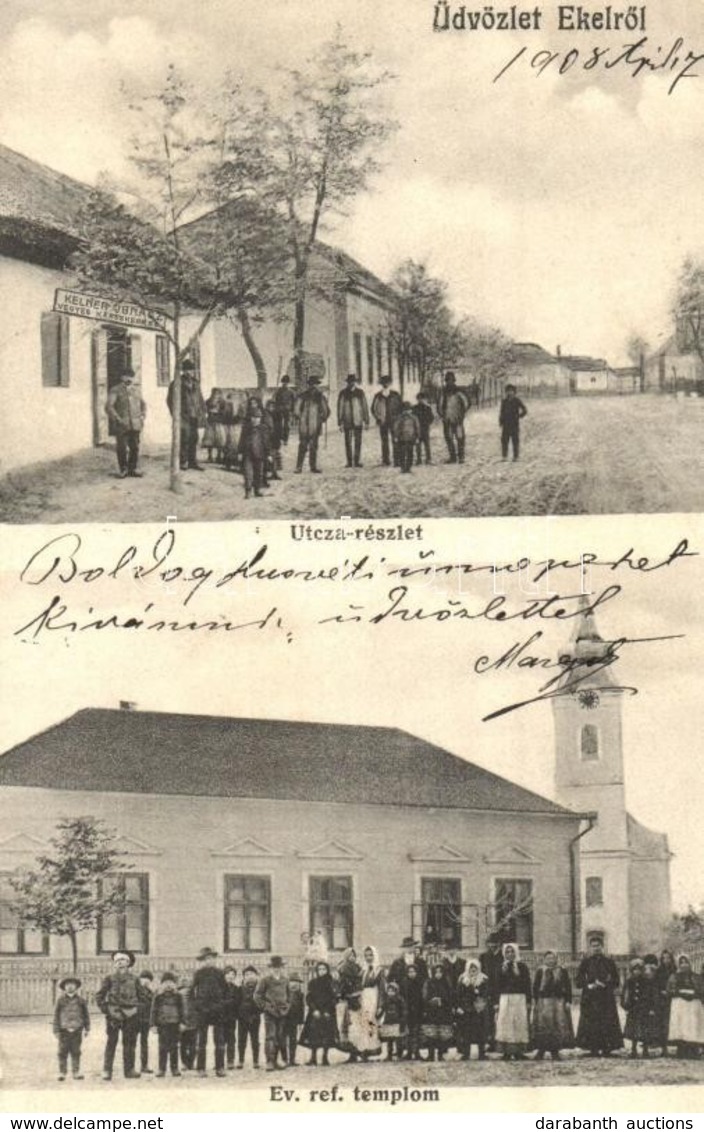 Üdvözlet Ekelről
1908 April 17
KELNER IGNÁCZ
VEGYES KERESKEDÉS
Utcza-részlet
Boldog husvéti ünnepeket
kivánunk üdvözlettel
Margit
Ev. ref. templom
darabanth auctions